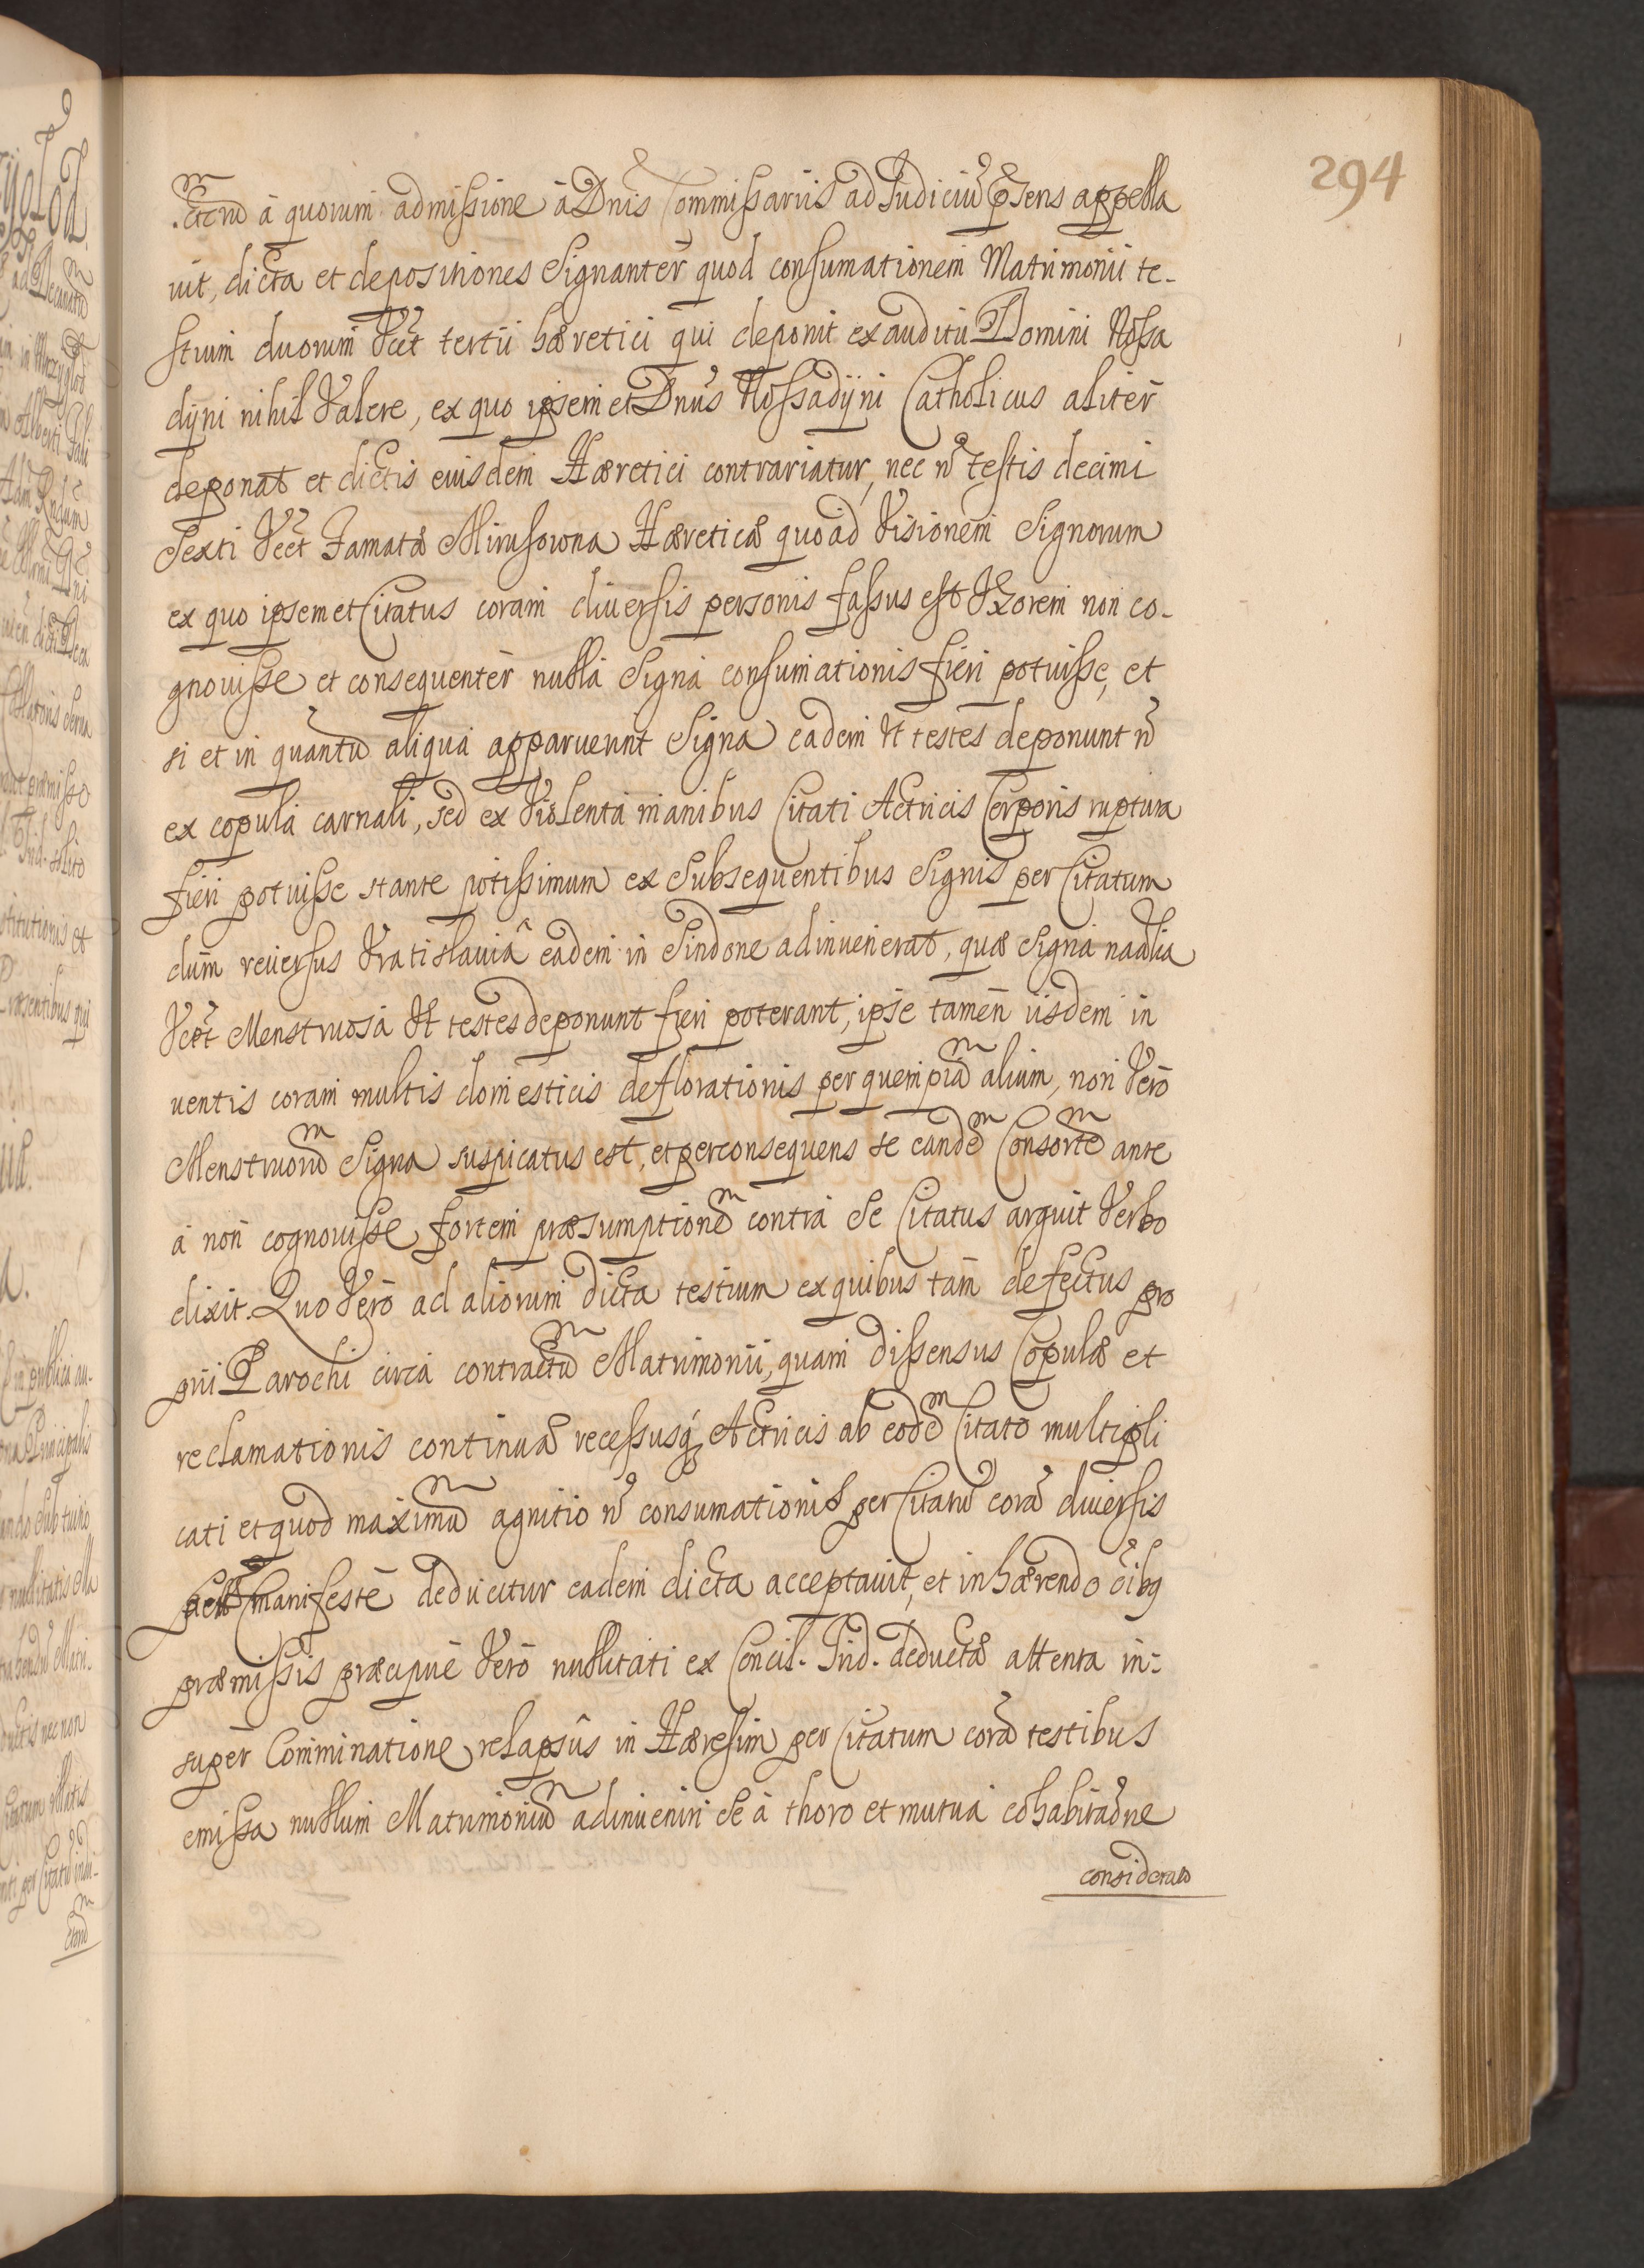 294
etm̃ à quorum admissione à Dnis Commissariis ad Judiciũ p̃sens appella
uit, dicta et depositiones Signantèr quod consumationem Matrimonii te-
stium duorum Vct tertii hæretici qui deponit ex auditu Domini Nossa
dijni nihil Valere, ex quo ipsemet Dnus Nossadijni Catholicus alitèr
deponat et dictis eiusdem Hæretici contrariatur, nec ñ testis decimi
Sexti Vct Famatæ Mirusowna Hæreticæ quo ad Visionem Signorum
ex quo ipsemet Citatus coram diuersis personis fassus est Vxorem non co-
gnouisse et consequentèr nulla Signa consumationis fieri potuisse, et
si et in quantũ aliqua apparuerunt Signa eadem Vt testes deponunt ñ
ex copula carnali, sed ex Violenta manibus Citati Actricis Corporis ruptura
fieri potuisse stante potissimum ex Subsequentibus Signis per Citatum
dum reuersus Vratislauiâ eadem in Sindone adinuenerat, quæ Signa nãlia
Vcpt Menstruosa Vt testes deponunt fieri poterant, ipse tamen iisdem in
uentis coram multis domesticis deflorationis per quempiã alium, non Verò
Menstruorũ Signa suspicatus est, et perconsequens se eandẽ Consortẽ ante
à non cognouisse, fortem præsumptionẽ contra Se Citatus arguit Verbo
dixit. Quo Verò ad aliorum dicta testium ex quibus tam defectus pro
prii Parochi circa contractũ Matrimonii, quam dissensus Copulæ et
reclamationis continuæ recessusq; Actricis ab eodẽ Citato multipli
cati et quod maximũ agnitio ñ consumationis per Citatũ corã diuersis
manifestè deducitur eadem dicta acceptauit, et inhærendo oĩbq
præmissis præcipuè Verò nullitati ex Concil. Trid. deductæ attenta in-
super Comminatione relapsûs in Hæresim per Citatum corã testibus
emissa nullum Matrimoniũ adinueniri Se à thoro et mutua cohabitaõne
considerato